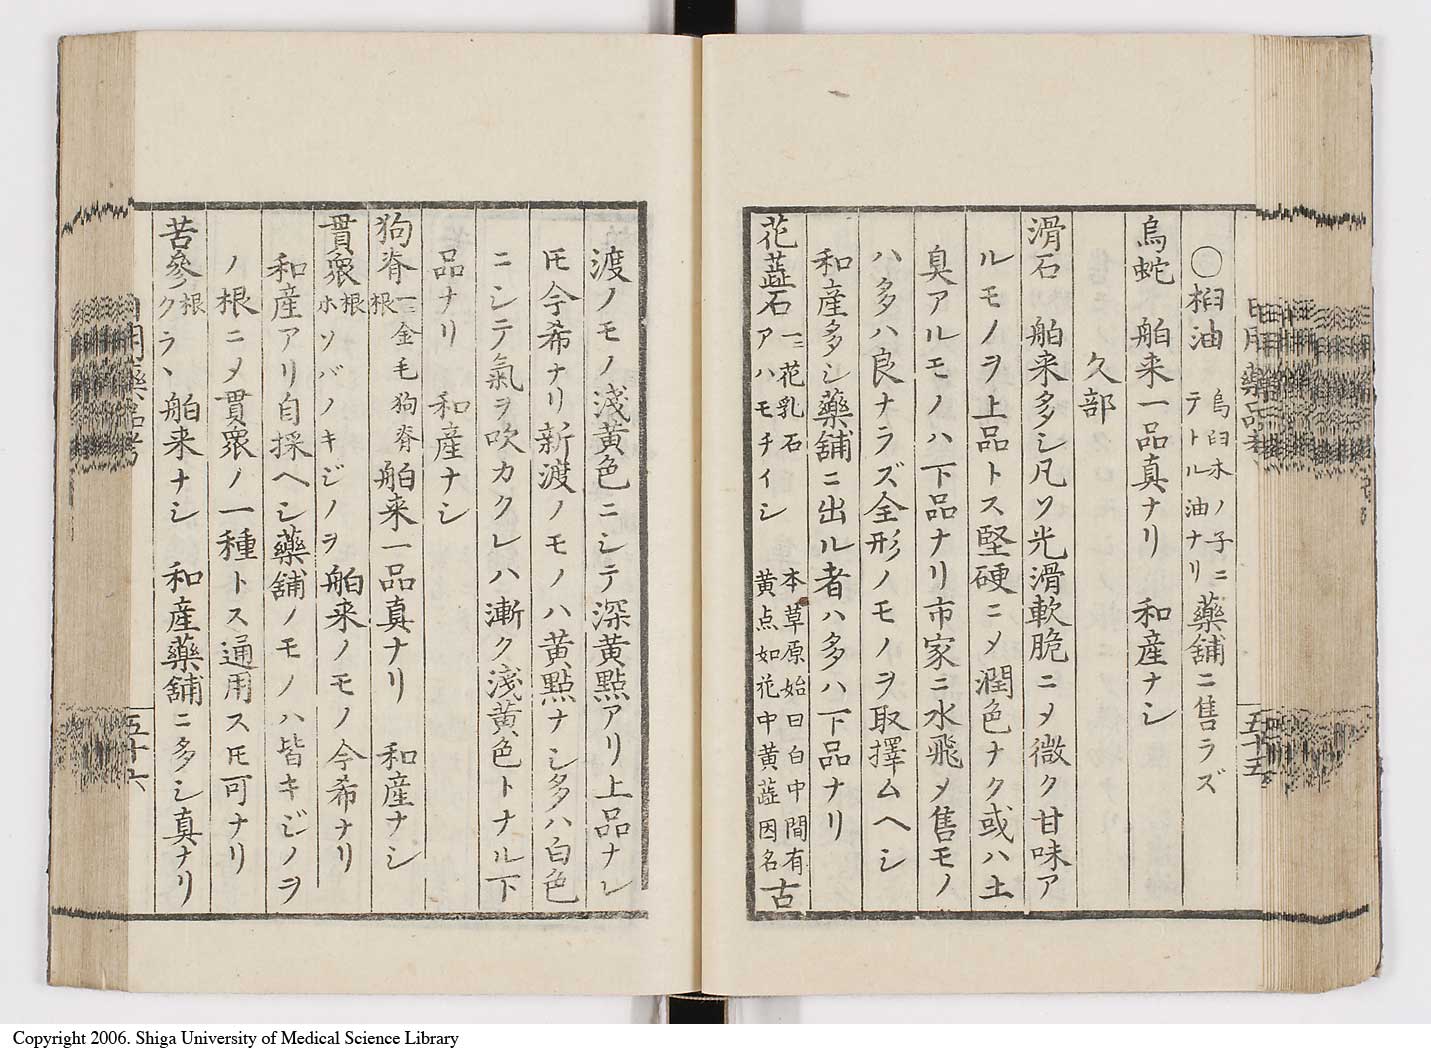 〇桕油 烏臼木ノ子ニテトル油ナリ 藥舗ニ售ラズ
烏蛇 舶来一品真ナリ 和産ナシ
久部
滑石 舶来多シ凡ソ光滑軟脆ニメ微ク甘味ア
ルモノヲ上品トス堅硬ニメ潤色ナク或ハ土
臭アルモノハ下品ナリ市家ニ水飛メ售モノ
ハ多ハ良ナラズ全形ノモノヲ取擇ムヘシ
和産多シ藥舗ニ出ル者ハ多ハ下品ナリ
花蕋石 一ニ花乳石 アハモチイシ 本草原始曰白中間有黄点如花中黄蕋因名 古
渡ノモノ淺黄色ニシテ深黄點アリ上品ナレ
𪜈今希ナリ新渡ノモノハ黄點ナシ多ハ白色
ニシテ氣ヲ吹カクレハ漸ク淺黄色トナル下
品ナリ 和産ナシ
狗脊 根 一ニ金毛狗脊 舶来一品真ナリ 和産ナシ
貫衆 根 ホソバノキジノヲ 舶来ノモノ今希ナリ
和産アリ自採ヘシ藥舗ノモノハ皆キジノヲ
ノ根ニメ貫衆ノ一種トス通用ス𪜈可ナリ
苦參 根 クラヽ 舶来ナシ 和産藥舗ニ多シ真ナリ
五十五
五十六
Copyright 2006. Shiga University of Medical Science Library